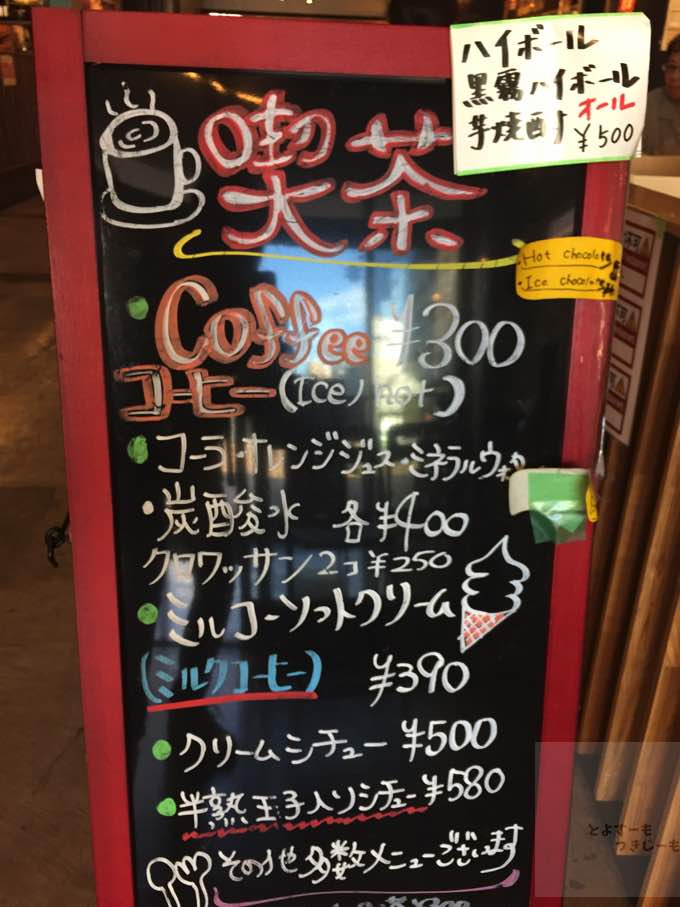 ハイボール
黒霧ハイボール
芋焼酎 オール
¥500
喫茶
・Hot chocolate
・Ice chocolate
・Coffee ¥300
コーヒー(Ice/hot)
・コーラ・オレンジジュース・ミネラルウォ
・炭酸水 各¥400
クロワッサン2コ¥250
・ミルコーソフトクリーム
(ミルクコーヒー) ¥390
・クリームシチュー ¥500
・半熟玉子入りシチュー ¥580
その他多数メニューございます
とよすーも
つきじーも